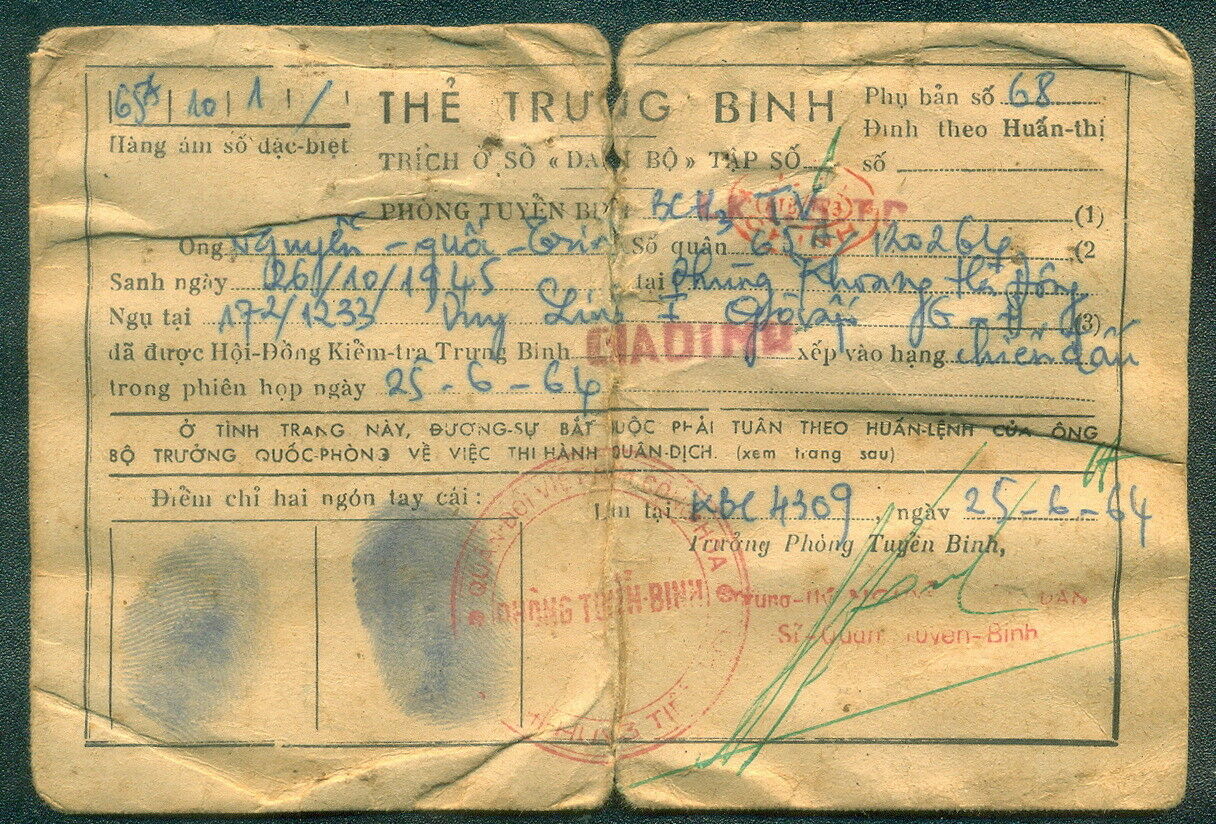 65A 10 1 /
Hàng ám số đặc-biệt
THẺ TRƯNG BINH
Phụ bản số 68
Đinh theo Huấn-thị
số
TRÍCH Ở SỒ « DANH BỘ » TẬP SỐ
PHÒNG TUYỂN BINH BCH3 TV (1)
Ông Nguyễn - quốc - Số quân 65A/120264 (2
Sanh ngày 26/10/1945 tại Phùng Khoang Hà Đông
Ngụ tại 172/1233 Duy Gò vấp (3)
đã được Hội-Đồng Kiểm-tra Trưng Binh GIADINH xếp vào hạng chiến đấu
trong phiên họp ngày 25-6-64
Ở TÌNH TRẠNG NÀY, ĐƯƠNG-SỰ BẮT BUỘC PHẢI TUÂN THEO HUẤN-LỆNH CỦA ÔNG
BỘ TRƯỞNG QUỐC-PHÒNG VỀ VIỆC THI HÀNH QUÂN-DỊCH. (xem trang sau)
Điểm chỉ hai ngón tay cái :
Làm tại KBC 4309, ngày 25-6-64
Trưởng Phòng Tuyển Binh,
QUÂN-ĐỘI VIỆT-NAM CỘNG-HÒA
PHÒNG TUYỂN-BINH
Sĩ-Quan Tuyển-Binh